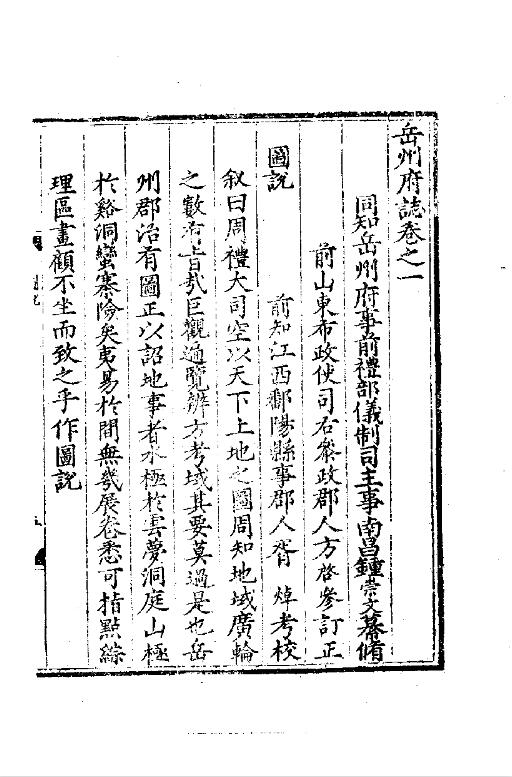 岳州府誌卷之一
同知岳州府事前禮部儀制司主事南昌鍾崇文纂脩
前山東布政使司右叅政郡人方啓參訂正
前知江西鄱陽縣事郡人胥焯考校
圖說
叙曰周禮大司空以天下土地之圖周知地域廣輪
之數若旨哉巨觀遍覽辨方考域其要莫過是也岳
州郡治有圖正以詔地事者水極於雲夢洞庭山極
於谿洞蠻寨險矣夷易於間無幾展卷悉可指點綜
理區畫顧不坐而致之乎作圖說